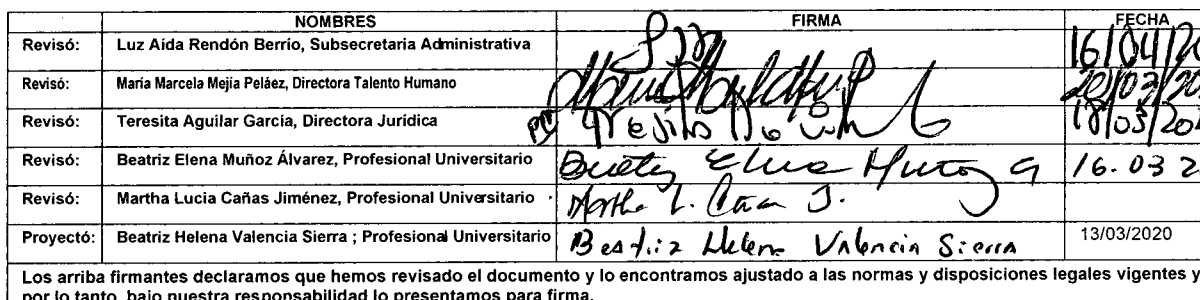 NOMBRES FIRMA FECHA
Revisó: Luz Aída Rendón Berrío, Subsecretaria Administrativa 16/04/20
Revisó: María Marcela Mejía Peláez, Directora Talento Humano 20/03/20
Revisó: Teresita Aguilar García, Directora Jurídica 18/03/20
Revisó: Beatriz Elena Muñoz Álvarez, Profesional Universitario Beatriz Elena Muñoz A 16.03 2
Revisó: Martha Lucia Cañas Jiménez, Profesional Universitario Martha L. Cañas J.
Proyectó: Beatriz Helena Valencia Sierra ; Profesional Universitario Beatriz Helena Valencia Sierra 13/03/2020
Los arriba firmantes declaramos que hemos revisado el documento y lo encontramos ajustado a las normas y disposiciones legales vigentes y
por lo tanto, bajo nuestra responsabilidad lo presentamos para firma.